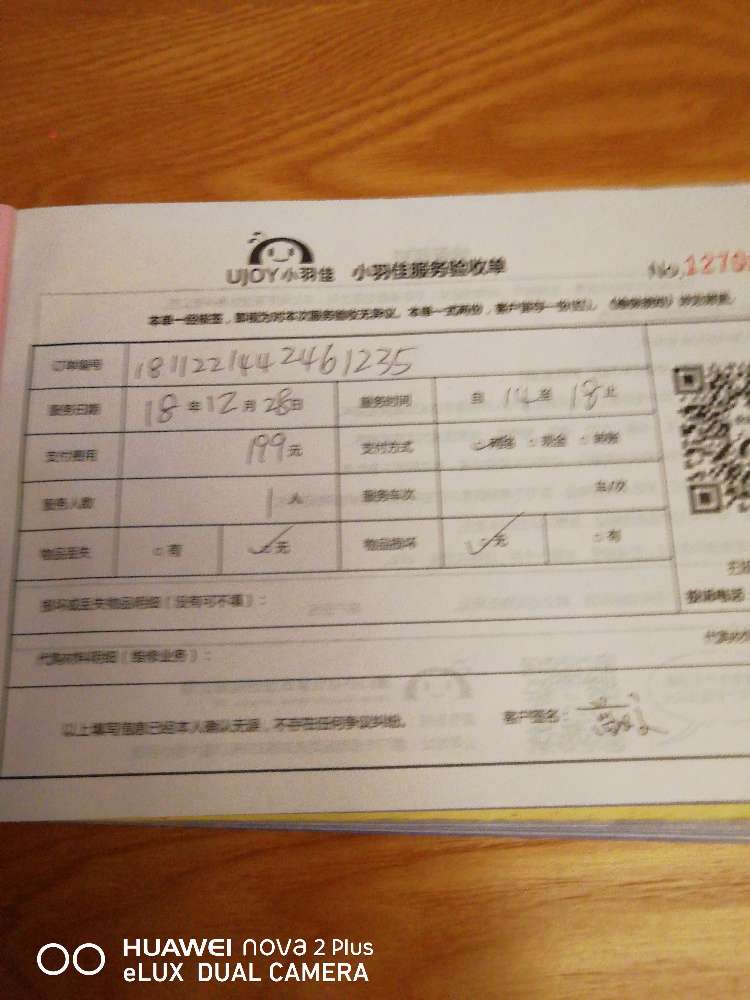 UJOY小羽佳 小羽佳服务验收单 No.1270
本单一经签, 即视为对本次服务验收无异议。本单一式两份,
订单编号 1811221442461235
服务日期 18年12月28日 服务时间 自 14至 18止
支付费用 199元 支付方式 网络 现金 转账
服务人数 1人 服务车次 车/次
物品丢失 有 ✓无 物品损坏 ✓无 有
损坏或丢失物品明细(没有可不填):
投诉电话:
代购材料明细(维修业务):
以上填写信息已经本人确认无误,不存在任何争议纠纷。 客户签名:
HUAWEI nova 2 Plus
eLUX DUAL CAMERA